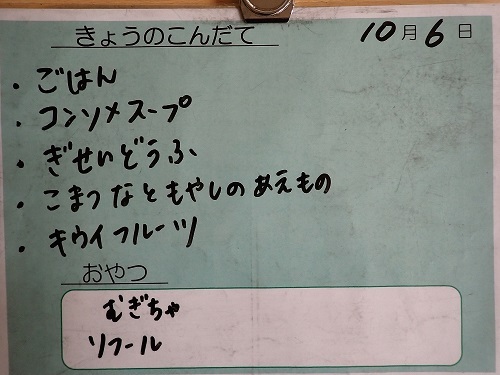 きょうのこんだて 10月6日
・ごはん
・コンソメスープ
・ぎせいどうふ
・こまつなともやしのあえもの
・キウイフルーツ
おやつ
むぎちゃ
ソフール